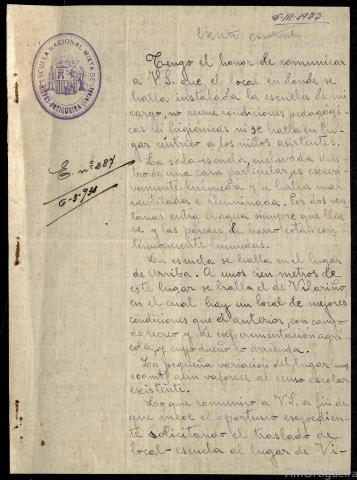 6-III-1933
ESCUELA NACIONAL MIXTA DE
ORTIGUEIRA
E. nº 287
6-3-933
Tengo el honor de comunicar
a V.S. que el local en donde se
halla instalada la escuela de mi
cargo, no reune condiciones pedagógi-
cas ni higienicas ni se halla en lu-
gar céntrico a los niños asistentes.
La sala-escuela, enclavada den-
tro de una casa particular, es excesi-
vamente humeda y se halla mal
ventilada e iluminada. Por dos ven-
tanas entra el agua siempre que llue-
ve y las paredes de barro están con-
tinuamente humedas.
La escuela se halla en el lugar
de Arriba. A unos cien metros de
este lugar se halla el de Vilariño
en el cual hay un local de mejores
condiciones que el anterior, con campo
de recreo y de experimentación agrí-
cola, y cuyo dueño lo arrienda.
La pequeña variación del lugar (unos
100 mts) aún favorece al censo escolar
existente.
Lo que comunico a V.S. a fin de
que incoe el oportuno expedien-
te solicitando el traslado de
local-escuela al lugar de Vi-